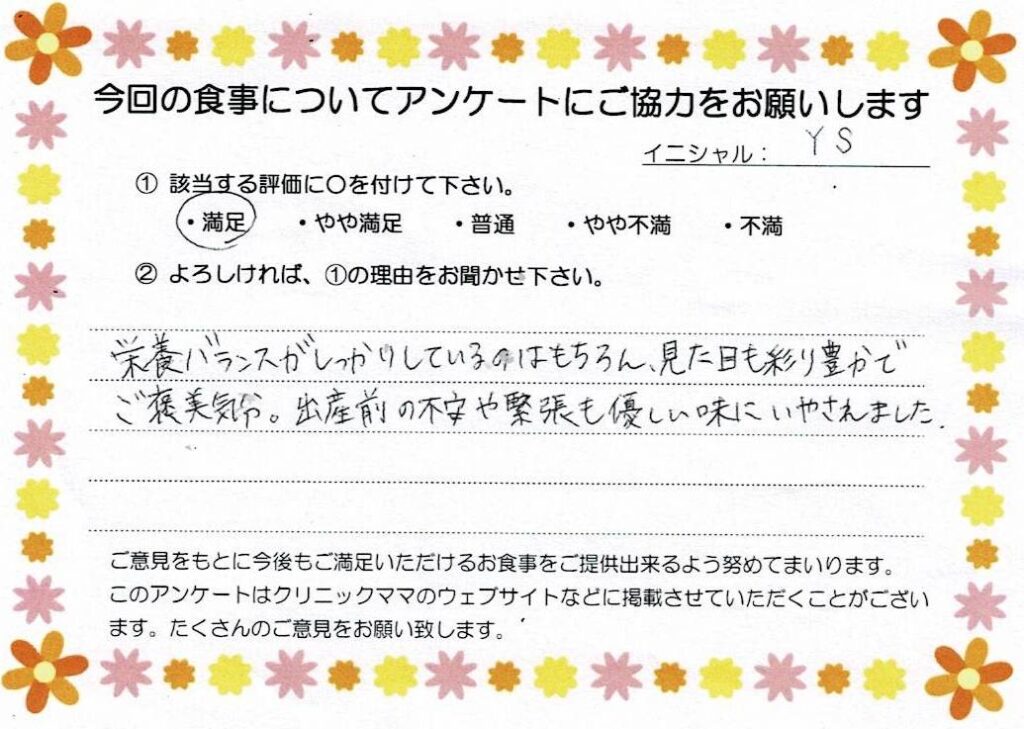 今回の食事についてアンケートにご協力をお願いします
イニシャル： YS
① 該当する評価に○を付けて下さい。
・満足 ・やや満足 ・普通 ・やや不満 ・不満
② よろしければ、①の理由をお聞かせ下さい。
栄養バランスがしっかりしているのはもちろん、見た目も彩り豊かで
ご褒美気分。出産前の不安や緊張も優しい味にいやされました.
ご意見をもとに今後もご満足いただけるお食事をご提供出来るよう努めてまいります。
このアンケートはクリニックママのウェブサイトなどに掲載させていただくことがござい
ます。たくさんのご意見をお願い致します。